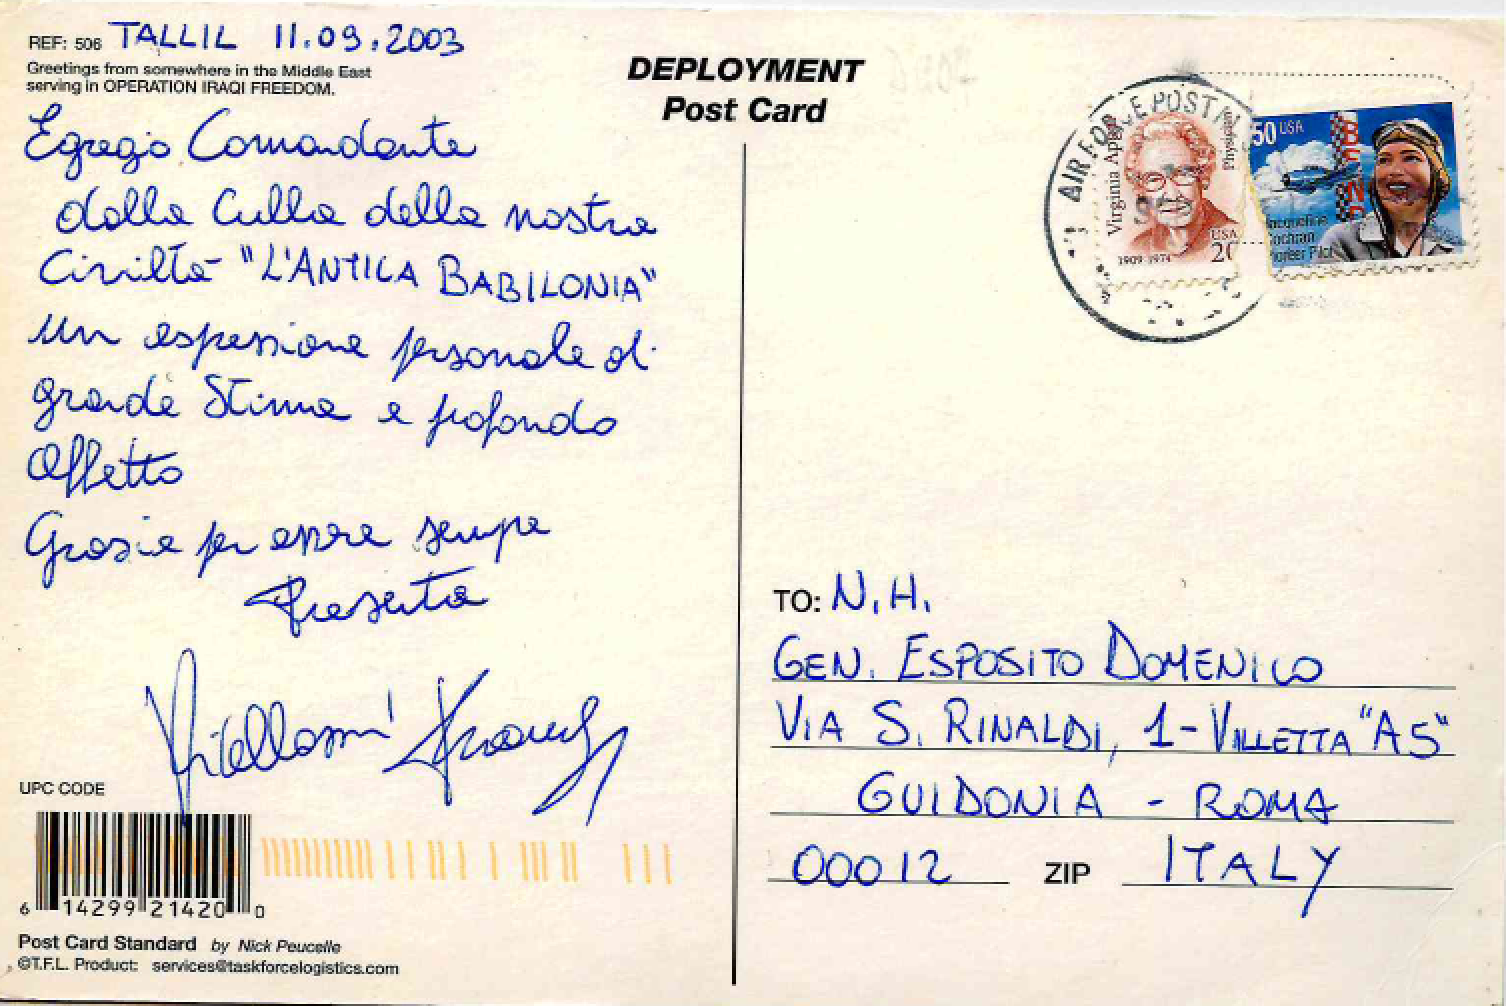 REF: 506 TALLIL 11.09.2003
Greetings from somewhere in the Middle East
serving in OPERATION IRAQI FREEDOM.
Egregio Comandante
dalla Culla della nostra
Civiltà "L'ANTICA BABILONIA"
un espressione personale di
grande Stima e profondo
Affetto
Grazie per essere sempre
Presente
UPC CODE
6 14299 21420 0
Post Card Standard by Nick Peucelle
©T.F.L. Product: services@taskforcelogistics.com
DEPLOYMENT
Post Card
AIR FORCE POSTAL
Virginia Apgar
Physician
1909-1974
USA
20
50 USA
BENDIX
Jacqueline
Cochran
Pioneer Pilot
TO: N.H.
GEN. ESPOSITO DOMENICO
VIA S. RINALDI, 1 - VILLETTA "A5"
GUIDONIA - ROMA
00012 ZIP ITALY